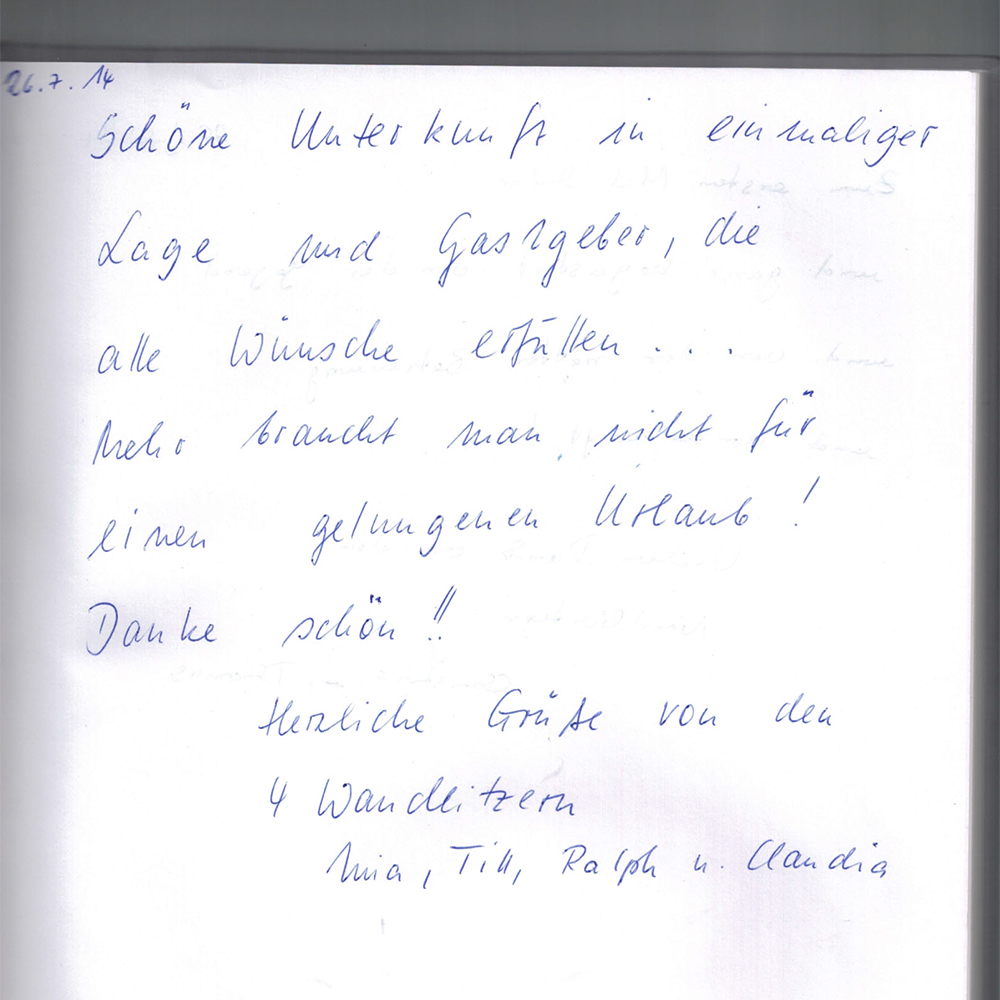 26.7.14
Schöne Unterkunft in einmaliger
Lage und Gastgeber, die
alle Wünsche erfüllen ....
Mehr braucht man nicht für
einen gelungenen Urlaub!
Danke schön!!
Herzliche Grüße von den
4 Wandlitzern
Mia, Till, Ralph u. Claudia